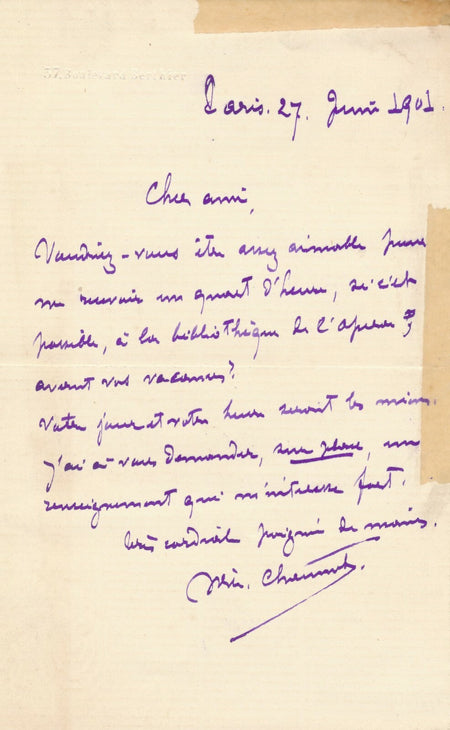 37. Boulevard Berthier
Paris. 27. Juin 1901.
Cher ami,
Voudriez-vous être assez aimable pour
me recevoir un quart d'heure, si c'est
possible, à la bibliothèque de l'Opéra,
avant vos vacances?
Votre jour et votre heure seront les miens.
J'ai à vous demander, sur place, un
renseignement qui m'intéresse fort.
Très cordiale poignée de mains.